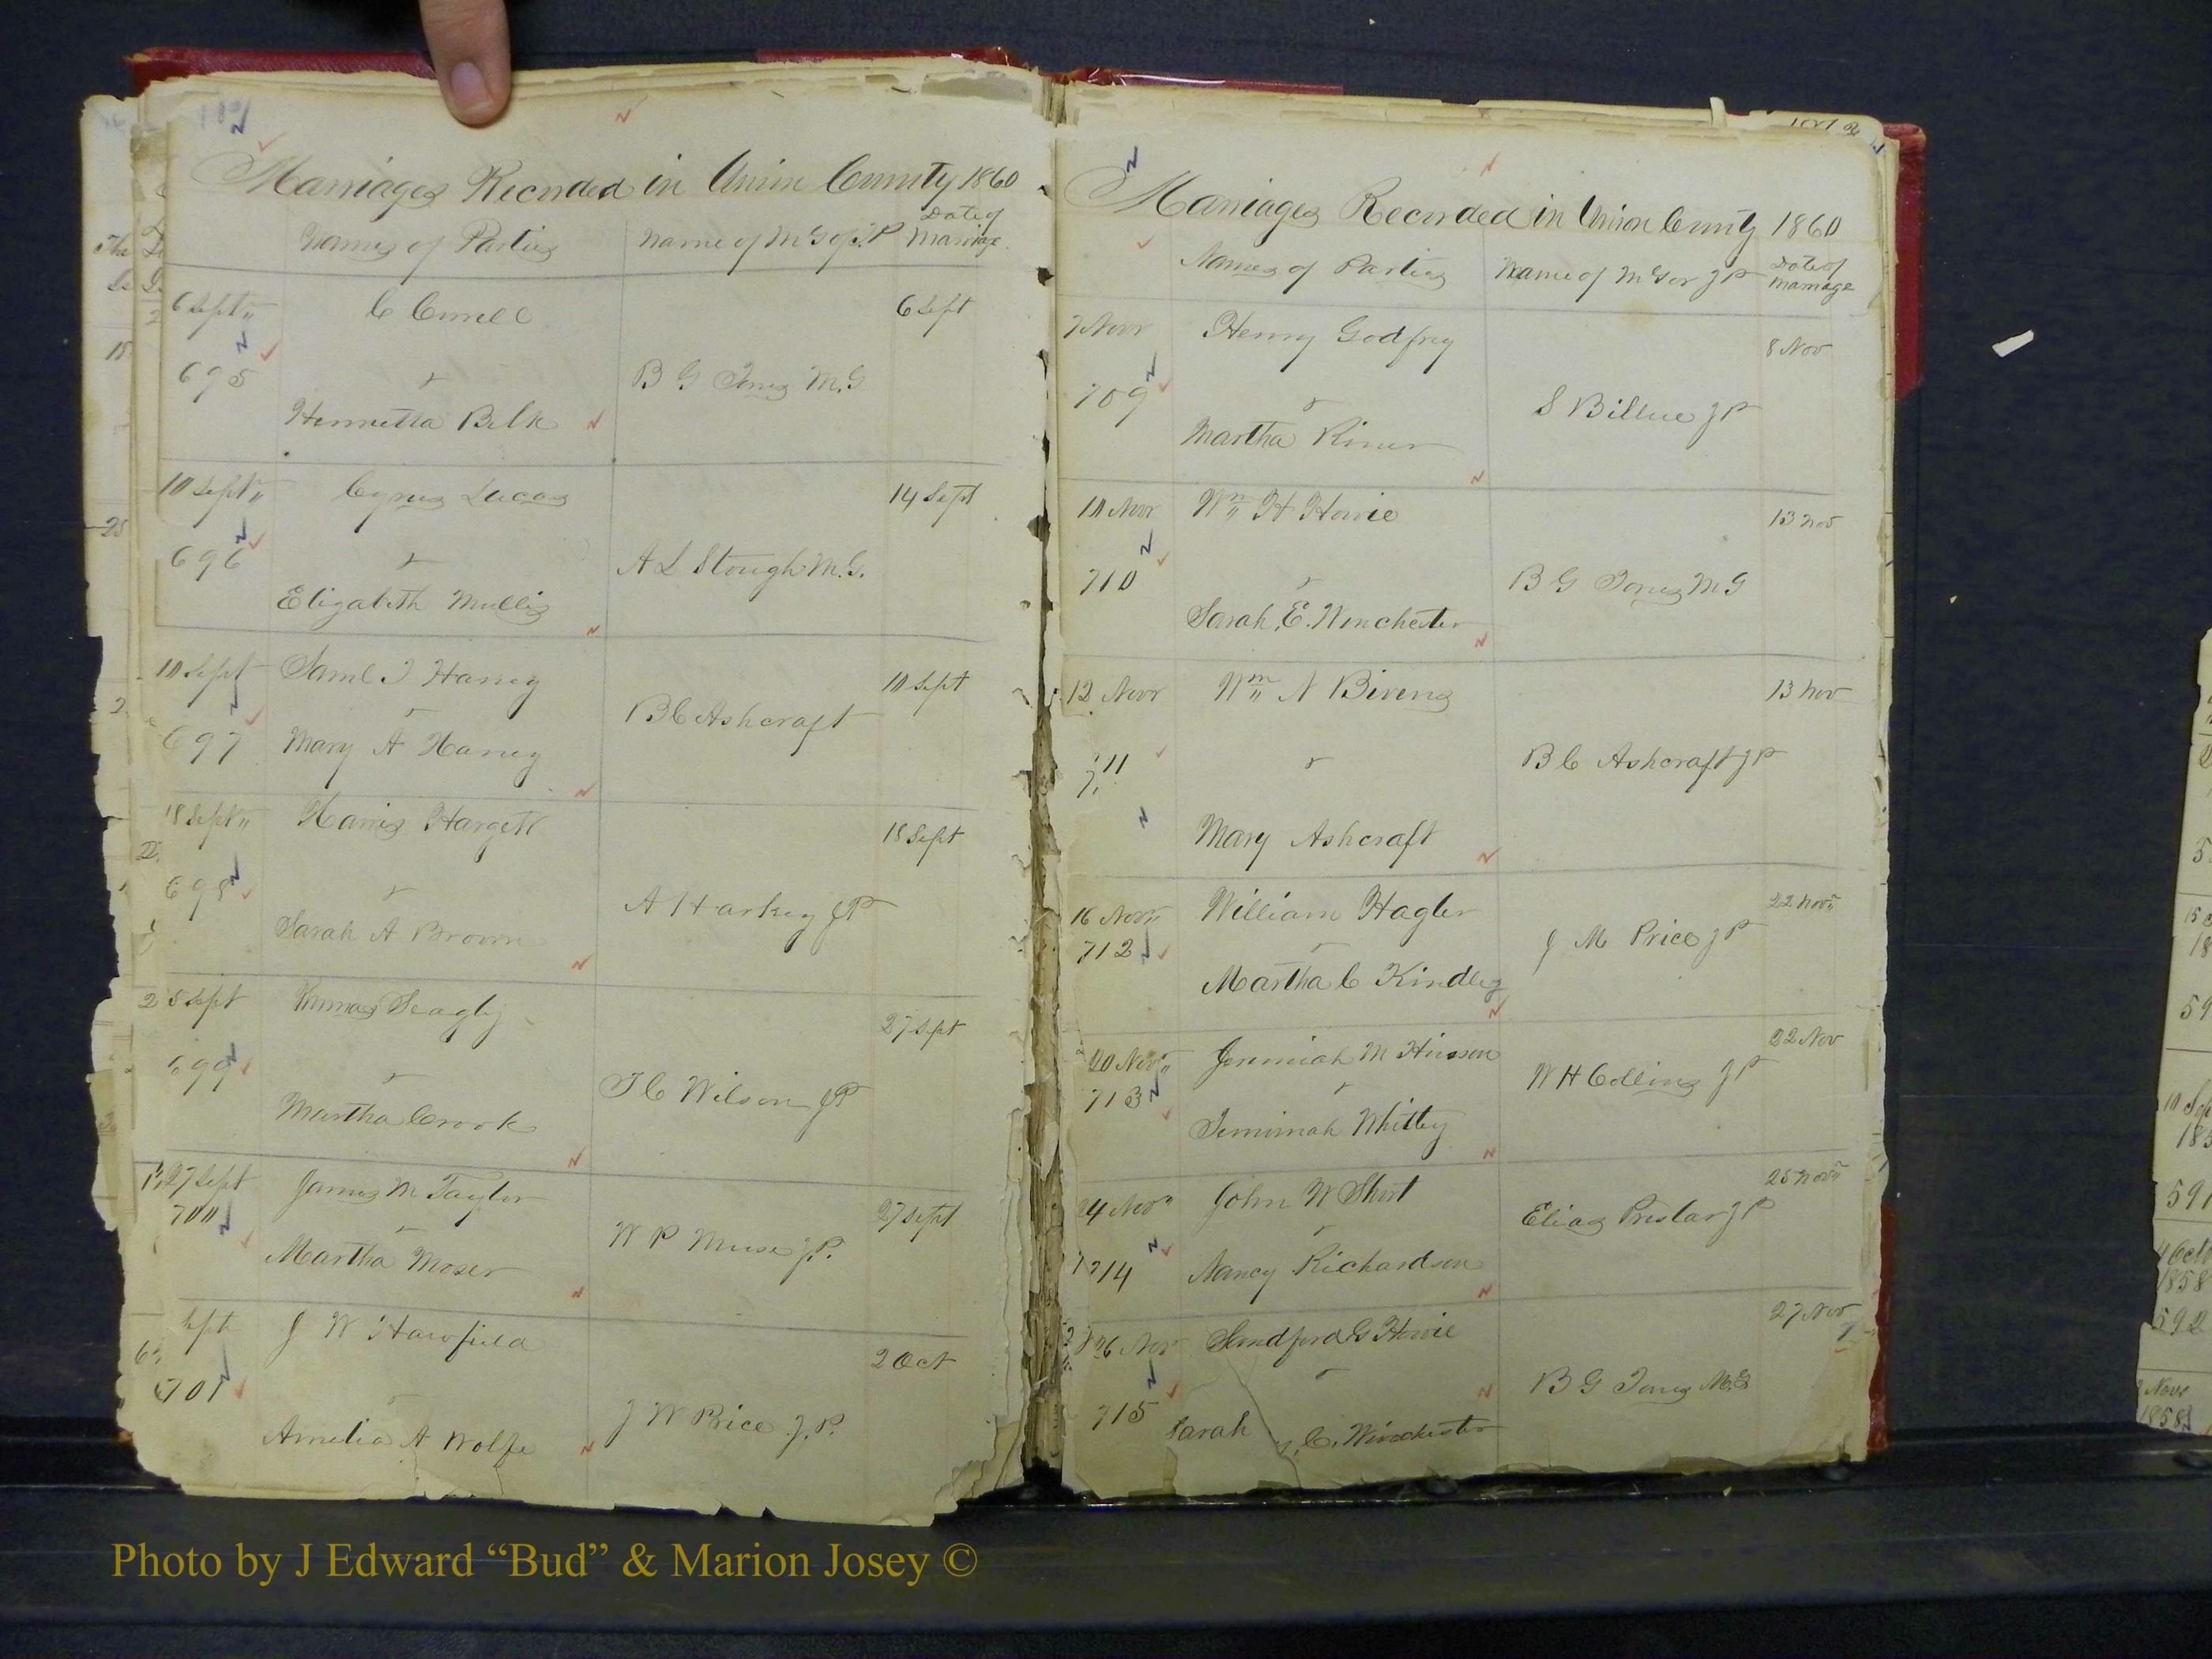 Marriages Recorded in Union County 1860
Names of Parties
Name of M G or J.P
Date of
Marriage
6 Sept
6 Sept
695
B G Jones M.G
Henrietta Belk
10 Sept
Cyrus Lucas
14 Sept
696
A L Stough M.G.
Elizabeth Mullis
10 Sept
Saml J Haney
10 Sept
B C Ashcraft
697
Mary A Haney
18 Sept
Harris Hargett
18 Sept
698
A Harkey JP
Sarah A Brown
25 Sept
27 Sept
699
T C Wilson JP
Martha Crook
27 Sept
James M Taylor
27 Sept
700
W P Muse J.P.
Martha Moser
Sept
J W
2 Oct
701
J W Price J.P.
Amelia A Wolfe
Marriages Recorded in Union County 1860
Names of Parties
Name of M G or J P
Date of
Marriage
7 Novr
Henry Godfrey
8 Nov
709
S Billue J P
Martha Riner
10 Novr
Wm H Howie
13 Nov
710
B G Jones M G
Sarah E. Winchester
12 Novr
Wm N Bivens
13 Nov
711
B C Ashcraft J P
Mary Ashcraft
16 Novr
William Hagler
22 Nov
712
J M Price J P
Martha C Kindley
20 Nov
Jeremiah M Hinson
22 Nov
713
W H Collins J P
Jemimah Whitley
24 Nov
John W Short
25 Nov
Elias Preslar J P
714
Nancy Richardson
26 Nov
Sandford G Howie
27 Nov
715
B G Jones M.G
Sarah C. Winchester
4 Oct
1858
592
Nov
1858
Photo by J Edward “Bud” & Marion Josey ©